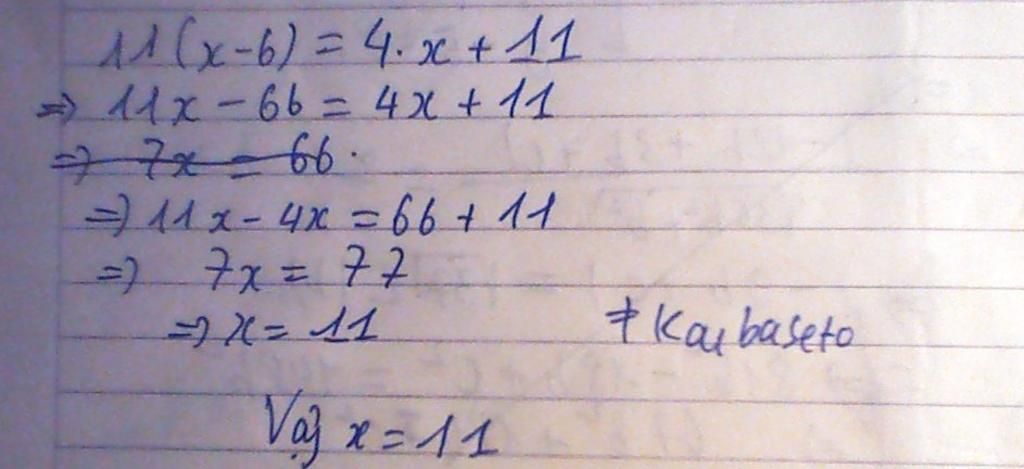 11(x-6) = 4.x + 11
=> 11x - 66 = 4x + 11
=> 7x = 66.
=> 11x - 4x = 66 + 11
=> 7x = 77
=> x = 11
≠ Kaibaseto
Vậy x = 11